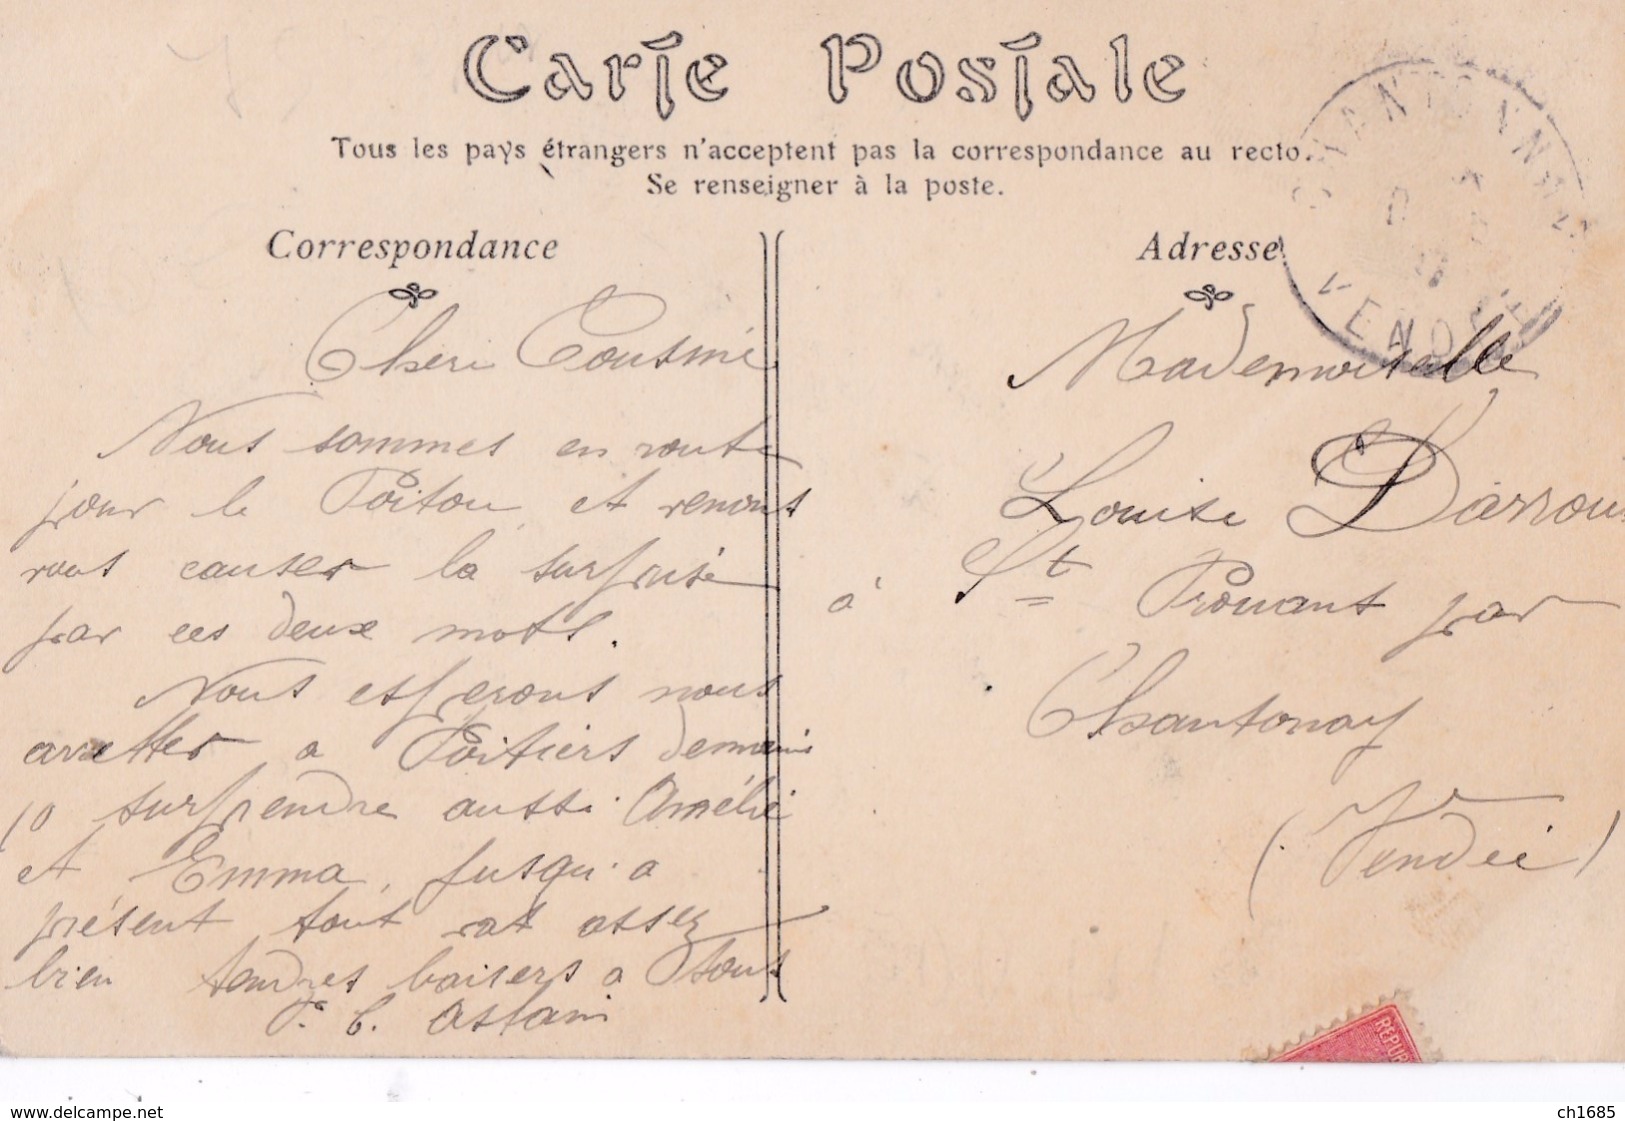 Carte Postale
Tous les pays étrangers n'acceptent pas la correspondance au recto.
Se renseigner à la poste.
Correspondance
Cheri Cousine
Nous sommes en route
pour le Poitou et venons
vous causer la surprise
par ces deux mots.
Nous esperons nous
arretter a Poitiers demain
surprendre aussi Amélie
et Emma, jusqu'a
présent tout vat assez
bien tendres baisers a tous
Adresse
CHANTONNAY
VENDÉE
Mademoiselle
Louise Darrou
à St Prouant par
Chantonnay
(Vendée)
REPUB
www.delcampe.net
ch1685